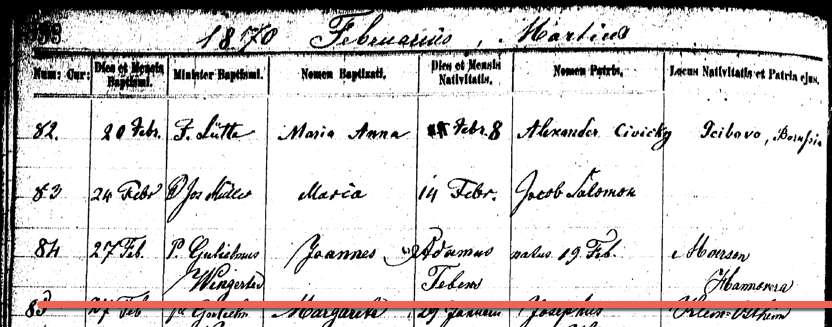 1870 Februarius, Martius
Num: Cur: Dies et Mensis Baptismi. Minister Baptismi. Nomen Baptizati. Dies et Mensis Nativitatis. Nomen Patris. Locus Nativitatis et Patria ejus.
82. 20 Febr. F. Lütte Maria Anna Febr. 8 Alexander Civicky Borussia
83 24 Febr P Jos Müller Maria 14 Febr. Jacob Salomon
84 27 Feb. P. Gulielmus Joannes Adamus natus 19 Feb.
Wingerter Hannovera
85 27 Feb Margareta 29 Januarii Josephus Klein-Ostheim